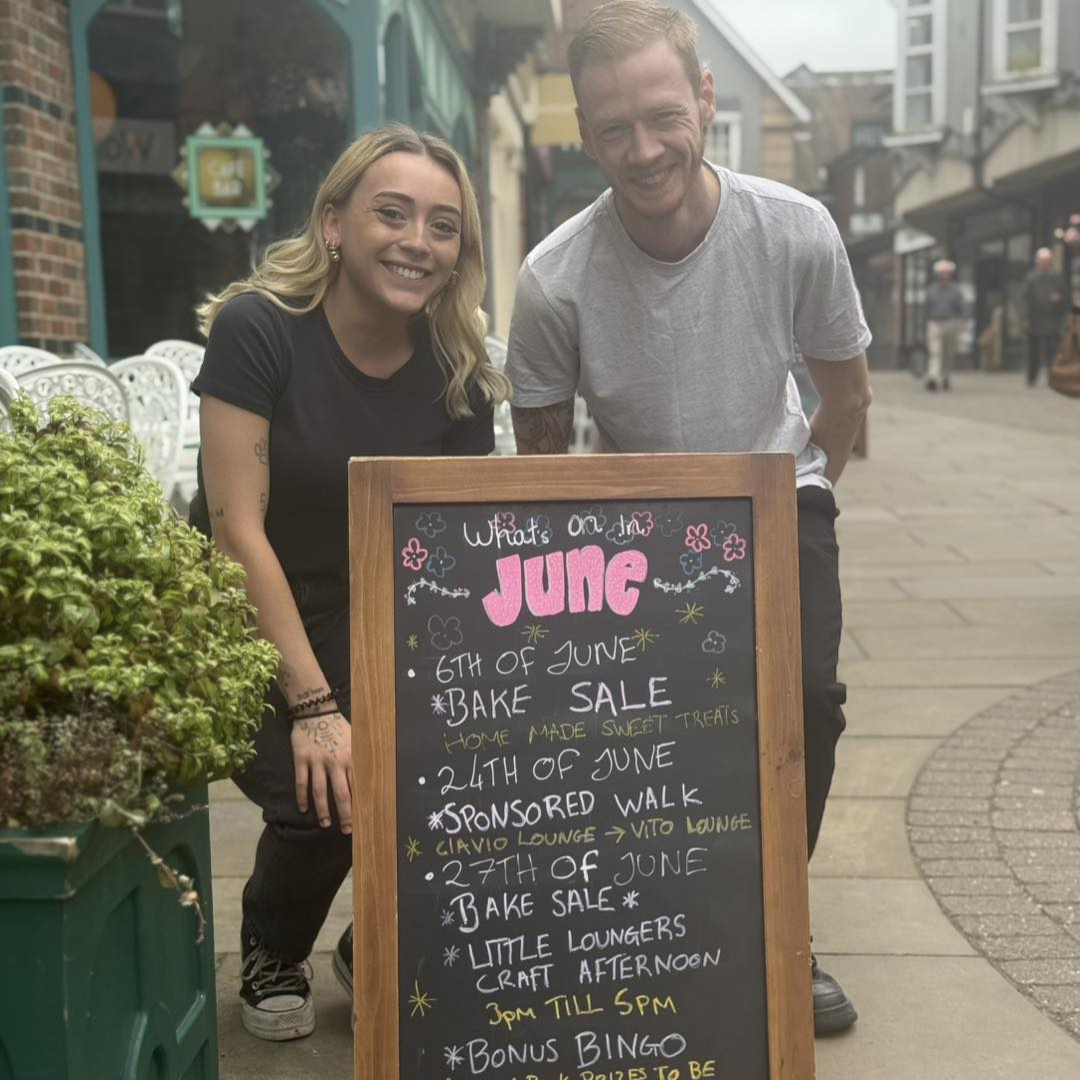 CAFE
BAR
What's on In
June
• 6TH OF JUNE
*BAKE SALE
HOME MADE SWEET TREATS
• 24TH OF JUNE
*SPONSORED WALK
* CIAVIO LOUNGE → VITO LOUNGE
• 27TH OF JUNE
*BAKE SALE*
* LITTLE LOUNGERS
CRAFT AFTERNOON
3pm TILL 5PM
*BONUS BINGO
PRIZES TO BE